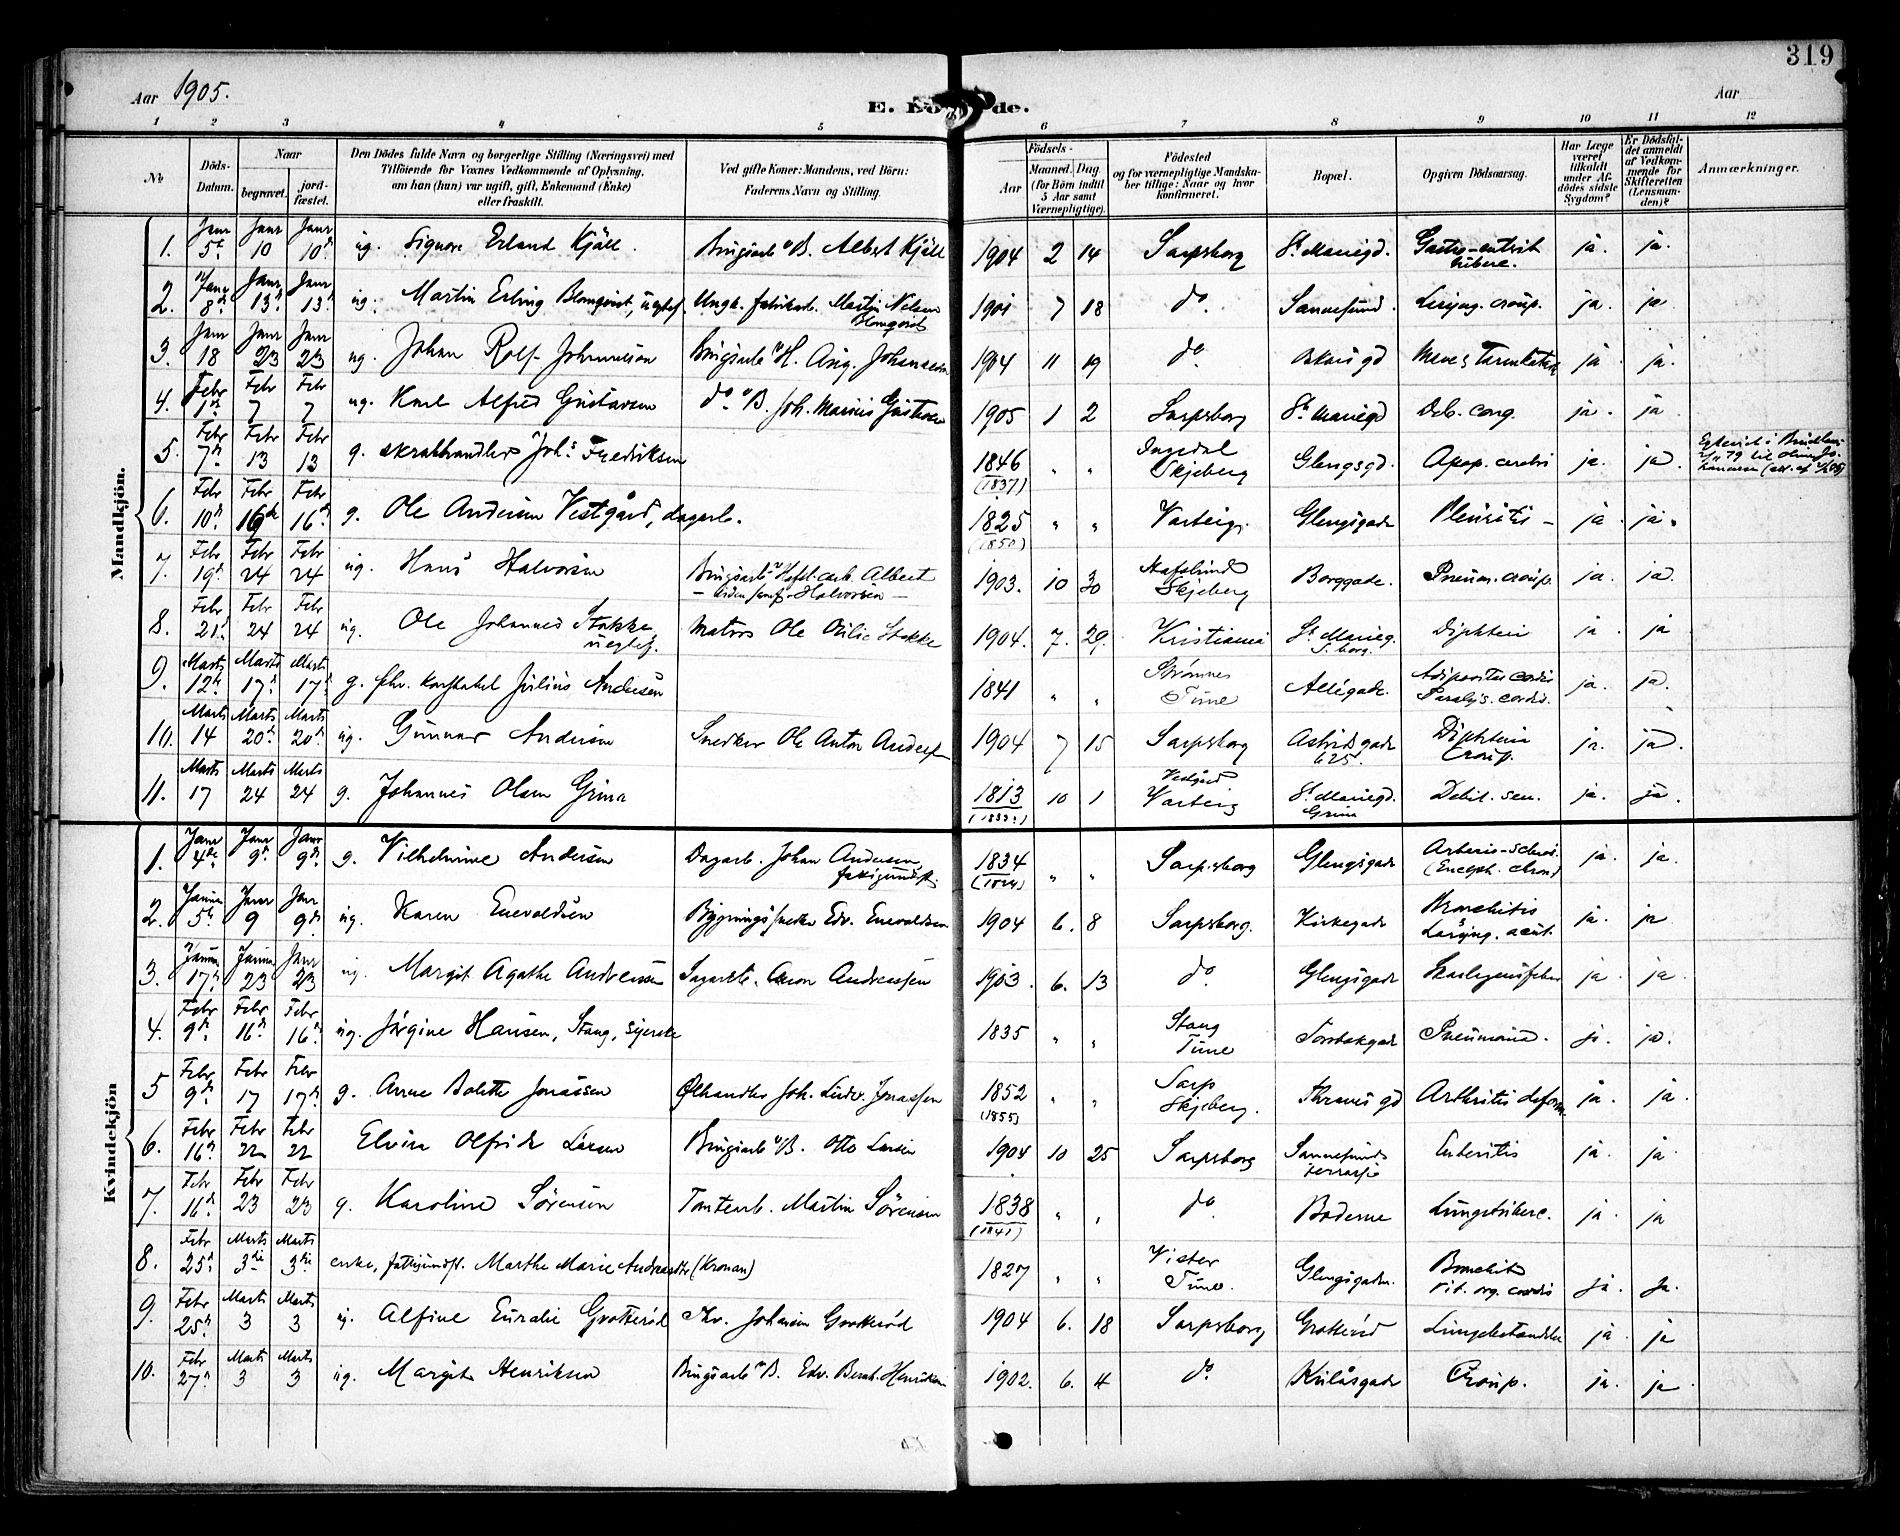 319
Aar 1905.
E. Dö de.
Aar
1 2 3 4 5 6 7 8 9 10 11 12
No
Döds-Datum.
Naar
begravet.
jordfæstet.
Den Dödes fulde Navn og borgerlige Stilling (Næringsvei) med
Tilföiende for Voxnes Vedkommende af Oplysning,
om han (hun) var ugift, gift, Enkemand (Enke)
eller fraskilt.
Ved gifte Koner: Mandens, ved Börn:
Faderens Navn og Stilling.
Födsels-
Aar
Maaned. Dag
(for Börn indtil
5 Aar samt
Værnepligtige).
Födested
og for værnepligtige Mandska-
ber tillige: Naar og hvor
konfirmeret.
Bopæl.
Opgiven Dödsaarsag.
Har Læge
været
tilkaldt
under Af-
dödes sidste
Sygdom?
Er Dödsfal-
det anmeldt
af Vedkom-
mende for
Skifteretten
(Lensman-
den)?
Anmærkninger.
Mandkjön.
1. Janr 5t Janr 10 Janr 10d ug. Signor Erland Kjäll. Brugsarb. v/B. Albert Kjäll 1904 2 14 Sarpsborg St Mariegd. Gastro-enterit tuberc. ja. ja.
2. Janr 8d Janr 13d Janr 13d ug. Martin Erling Blomqvist, uegtef. Ungk. fabrikarb. Martin Nilsen Blomqvist 1901 7 18 do Sannesund. Laryng. croup. ja. ja
3. Janr 18 Janr 23 Janr 23 ug. Johan Rolf Johannesen Brugsarb. v/H. Aug. Johannesen 1904 11 19 do Oskarsgd Mave & Tarmkatarrh ja ja.
4. Febr 1ste Febr 7 Febr 7 ug. Karl Alfred Gustavsen do v/B. Joh. Marius Gustavsen 1905 1 2 Sarpsborg St Mariegd Deb. cong. ja. ja
5. Febr 7d Febr 13 Febr 13 g. skraphandler Johs Fredriksen 1846 (1837) " " Ingedal Skjeberg Glengsgd. Apop. cerebri ja. ja.
6. Febr 10d Febr 16de Febr 16d g. Ole Andersen Vestgård, dagarb. 1825 (1850) " " Varteig. Glengsgade Pleuritis - ja. ja.
7. Febr 19d Febr 24 Febr 24 ug. Hans Halvorsen Brugsarb. v/Hafsl. carb. Albert Halvorsen 1903. 10 30 Hafslund Skjeberg Borggade. Pneum. croup. ja. ja.
8. Febr 21d Febr 24 Febr 24 ug. Ole Johannes Stokke uegtef. Matros Ole Oulie Stokke 1904. 7. 29. Kristiania St Marieg. S.borg. Diphteri ja. ja
9. Marts 12d Marts 17d Marts 17d g. fhv. Konstabel Julius Andersen 1841 " " Strømnes Tune Allégade. Adipositas cordis Paralys. cordis. ja. ja.
10. Marts 14 Marts 20d Marts 20d ug. Gunnar Andersen Snedker Ole Anton Andersen 1904 7 15 Sarpsborg Astridsgade 625. Diphteri Croup. ja. ja.
11. Marts 17 Marts 24 Marts 24 g. Johannes Olsen Grina 1813 10 1 Vestgård Varteig St Mariegd. Grina Debil. sen. ja. ja.
Kvindekjön
1. Janr 4de Janr 9d Janr 9d g. Vilhelmine Andersen Dagarb. Johan Andersen, fattigunderst. 1834 " " Sarpsborg Glengsgade Arterio-scleros. (Enceph. chron) ja. ja.
2. Januar 5te Janr 9 Janr 9d ug. Karen Enevoldsen Bygningssnedker Edv. Enevoldsen 1904 6. 8 Sarpsborg. Kirkegade Bronchitis & Laryng. acut. ja. ja
3. Januar 17d Januar 23 Janr 23 ug. Margit Agathe Andreassen Sagarb. Aron Andreassen 1903. 6. 13 do Glengsgade Skarlagensfeber ja. ja.
4. Febr 9d Febr 16d Febr 16d ug. Jørgine Hansen, Stang, syerske 1835 " " Stang Tune Torsbakgade Pneumonia. ja. ja.
5 Febr 9d Febr 17 Febr 17d g. Anne Bolette Jonassen Ølhandler Joh. Ludv. Jonassen 1852 (1855) " " Sarp Skjeberg. Thranesgd Arthritis deform. ja. ja.
6. Febr 16d Febr 22 Febr 22 Elvira Olfride Larsen Brugsarb v/B. Otto Larsen 1904 10 25 Sarpsborg Sannesunds terrasse Enteritis ja. ja.
7. Febr 16d Febr 23 Febr 23 g. Karoline Sørensen Tomtearb. Martin Sørensen 1838 (1841) " " do Boderne Lungetuberc. ja. ja
8. Febr 25d Marts 3die Marts 3die enke, fattigunderst. Marthe Marie Andreasdtr (Kronan) 1827 " " Vister Tune. Glengsgaden. Bronchit. vit. org. cordis ja. ja.
9. Febr 25d Marts 3 Marts 3 ug. Alfine Euralie Grotterød Johansen Grotterød 1904 6. 18 Sarpsborg Grotterød Lungebetændelse ja. ja
10. Febr 27d Marts 3 Marts 3 ug. Margit Henriksen Brugsarb v/B. Edv. Bernh. Henriksen 1902. 6. 4 do Kulåsgade Croup. ja. ja